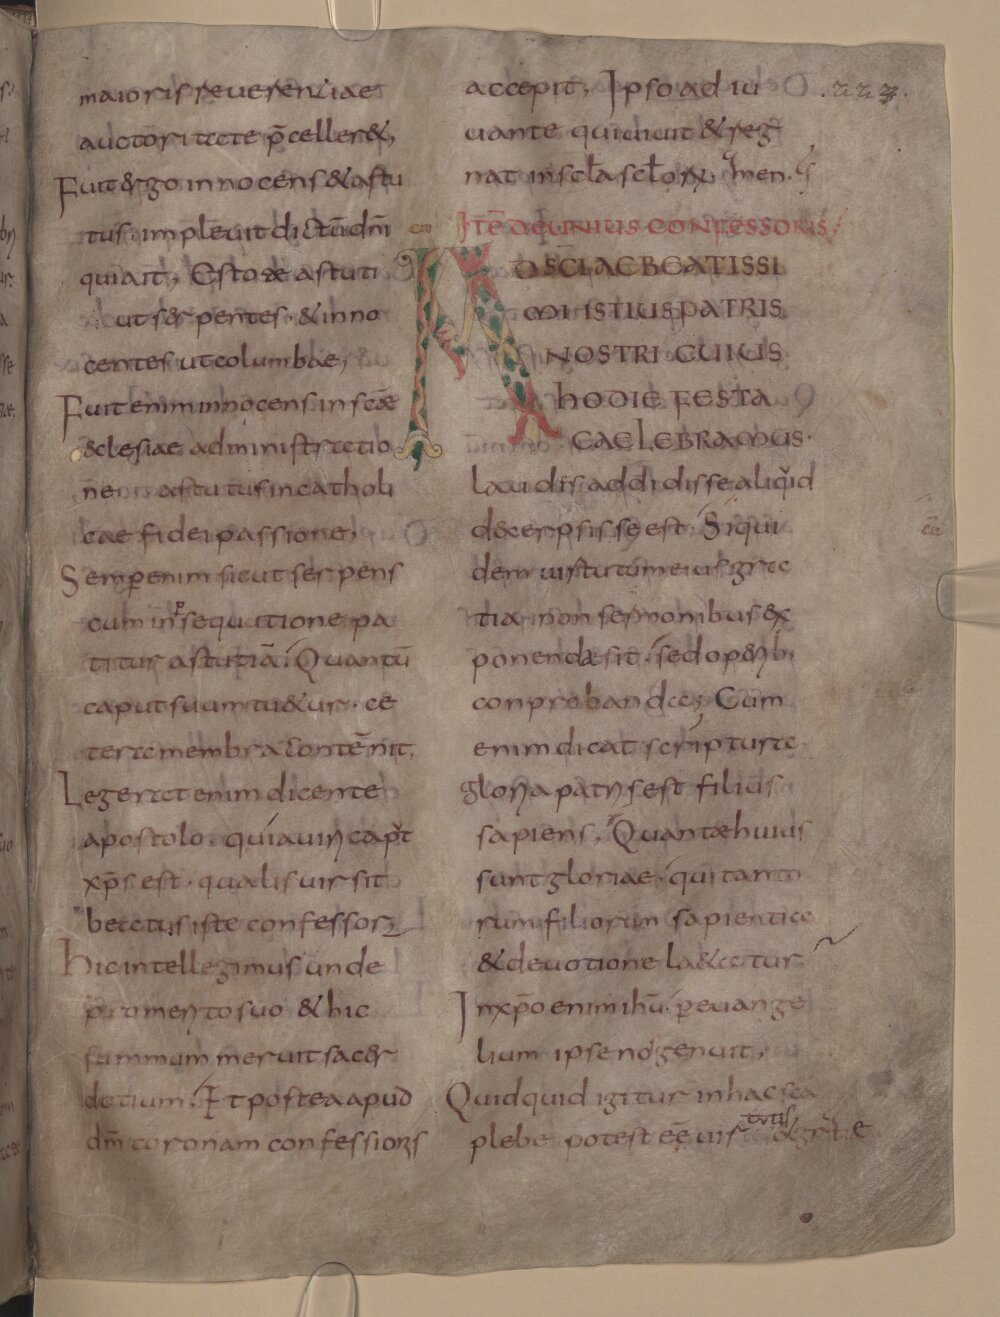 maioris reuerentiae
auctoritate p̄celleret,
Fuit ergo innocens & astu
tus. impleuit dictū dn̄i
quiait, Estotae astuti
ut serpentes. & inno
centes ut columbae,
Fuit enim innocens in sc̄ae
&clesiae administratio
ne astutus in catholi
cae fidei passione,
Semper enim sicut serpens
cum in psequutione pa
titur astutiā. Quantū
caput suum tu&ur. ce
tera membra contēnit,
Legerat enim dicente
apostolo. quia uiri cap̄t
xp̄s est. qualis uir sit
beatus iste confessor,
Hic intellegimus unde
pro merito suo & hic
summum meruit sacer
dotium. Et postea apud
dm̄ coronam confessionis
accepit, Ipso adiu
uante qui uiuit & reg
nat in scl̄a scl̄orum. Amen.
223.
ITĒ DE UNIUS CONFESSORIS
AD SC̄I AC BEATISSI
MI ISTIUS PATRIS
NOSTRI CUIUS
HODIE FESTA
CAELEBRAMUS.
laudis addidisse aliquid
decerpsisse est. Siqui
dem uirtutum eius gra
tia. non sermonibus ex
ponenda sit. sed operib;
conprobandae, Cum
enim dicat scriptura
gloria patris est filius
sapiens, Quantae huius
sunt gloriae. qui tanto
rum filiorum sapientia
& deuotione la&atur
In xp̄o enim ihū. p euange
lium ipse nos genuit,
Quidquid igitur in hac sca
plebe potest eē uir tutis, & gratiae